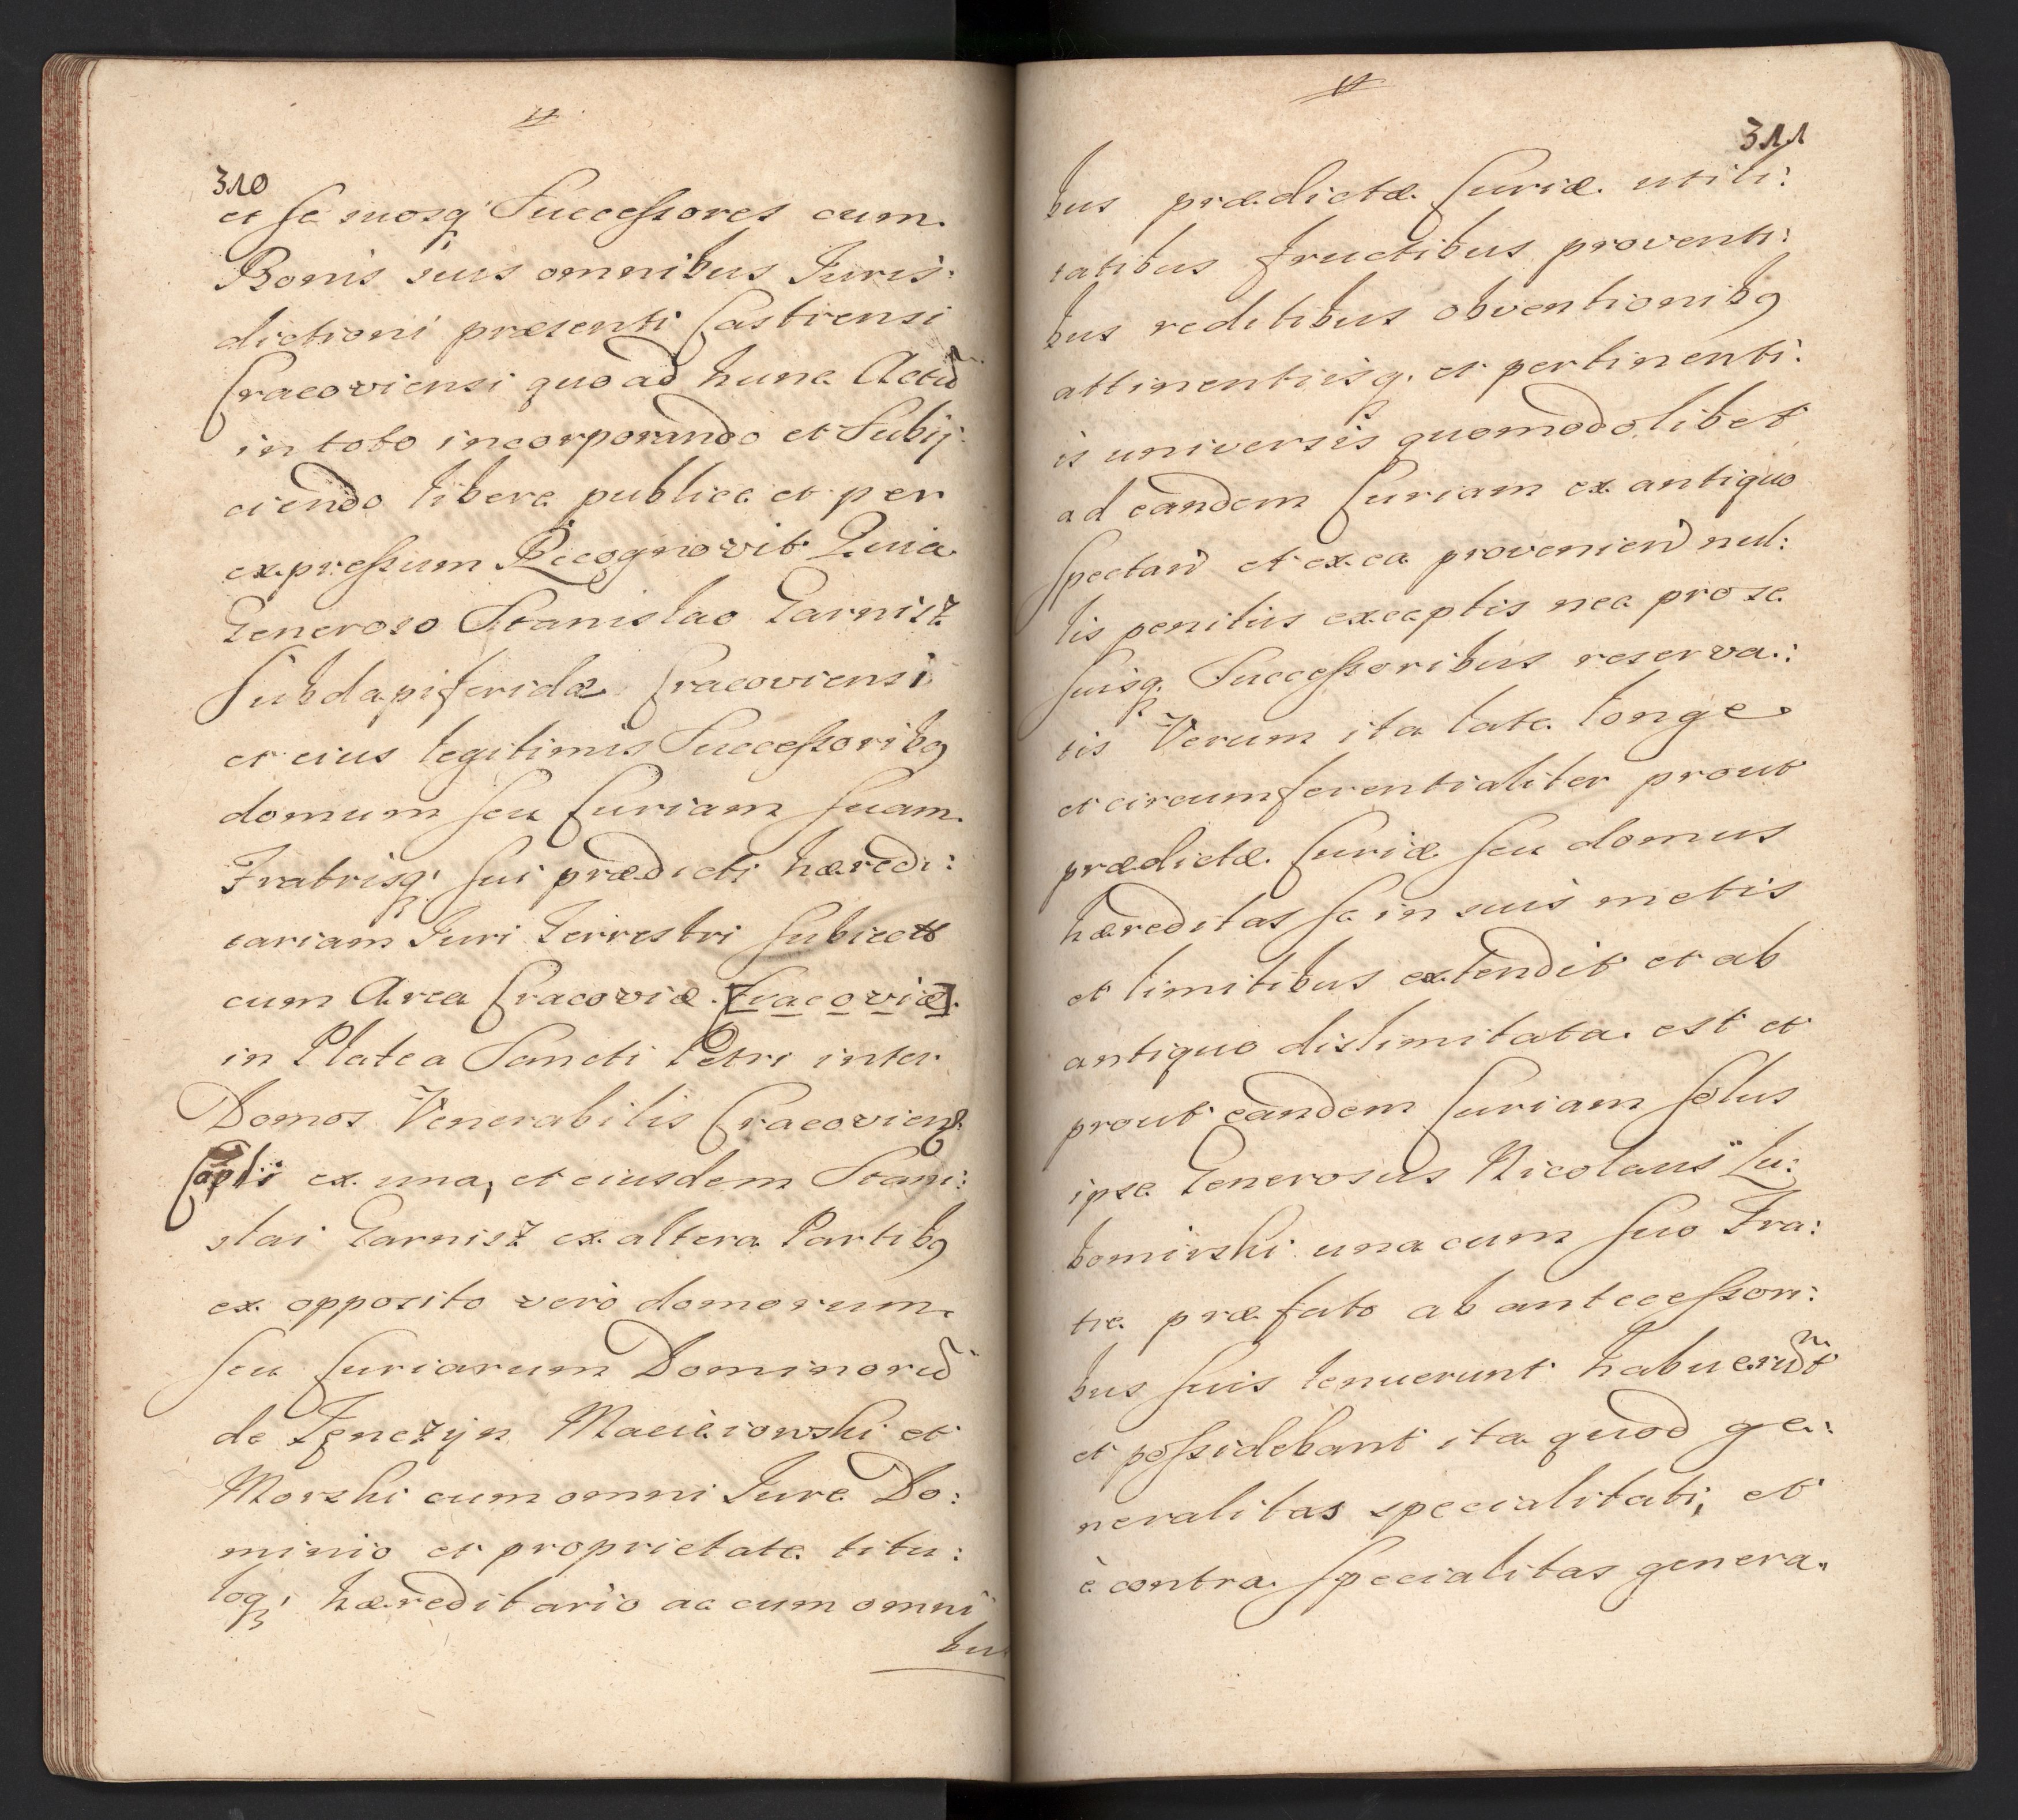 310
et se suosq; Successores cum
Bonis suis omnibus Juris:
dictioni præsenti Castrensi
Cracoviensi quoad hunc Actũ
in toto incorporando et Subij
ciendo libere publice et per
expressum Recognovit Quia
Generoso Stanislao Garnisz
Subdapiferidæ Cracoviensi
et eius legitimis Successoribq
domum seu Curiam suam
Fratrisq; sui prædicti hæredi:
tariam Juri Terrestri subiect
cum Area Cracoviæ [Cracoviæ]
in Platea Sancti Petri inter
Domos Venerabilis Cracovien
Capli ex una, et eiusdem Stani:
slai Garnisz ex altera Partibq
ex opposito verò domorum
seu Curiarum Dominorũ
de Tęnczyn Macieiowski et
Morski cum omni Jure Do:
minio et proprietate titu:
loq; hæreditario ac cum omni
bus
311
bus prædictæ Curiæ utili:
tatibus fructibus proventi:
bus reditibus obventionibq
attinentiisq; et pertinenti:
is universis quomodolibet
ad eandem Curiam ex antiquo
spectan̄ et ex ea provenien̄ nul:
lis penitus exceptis nec pro se
suisq; Successoribus reserva:
tis Verum ita late longe
et circumferentialiter prout
prædictæ Curiæ seu domus
hæreditas se in suis metis
et limitibus extendit et ab
antiquo dislimitata est et
prout eandem Curiam solus
ipse Generosus Nicolaus Lu:
bomirski una cum suo Fra:
tre præfato ab antecessori:
bus suis tenuerunt habuerũt
et possidebant ita quod ge:
neralitas specialitati, et
è contra specialitas genera